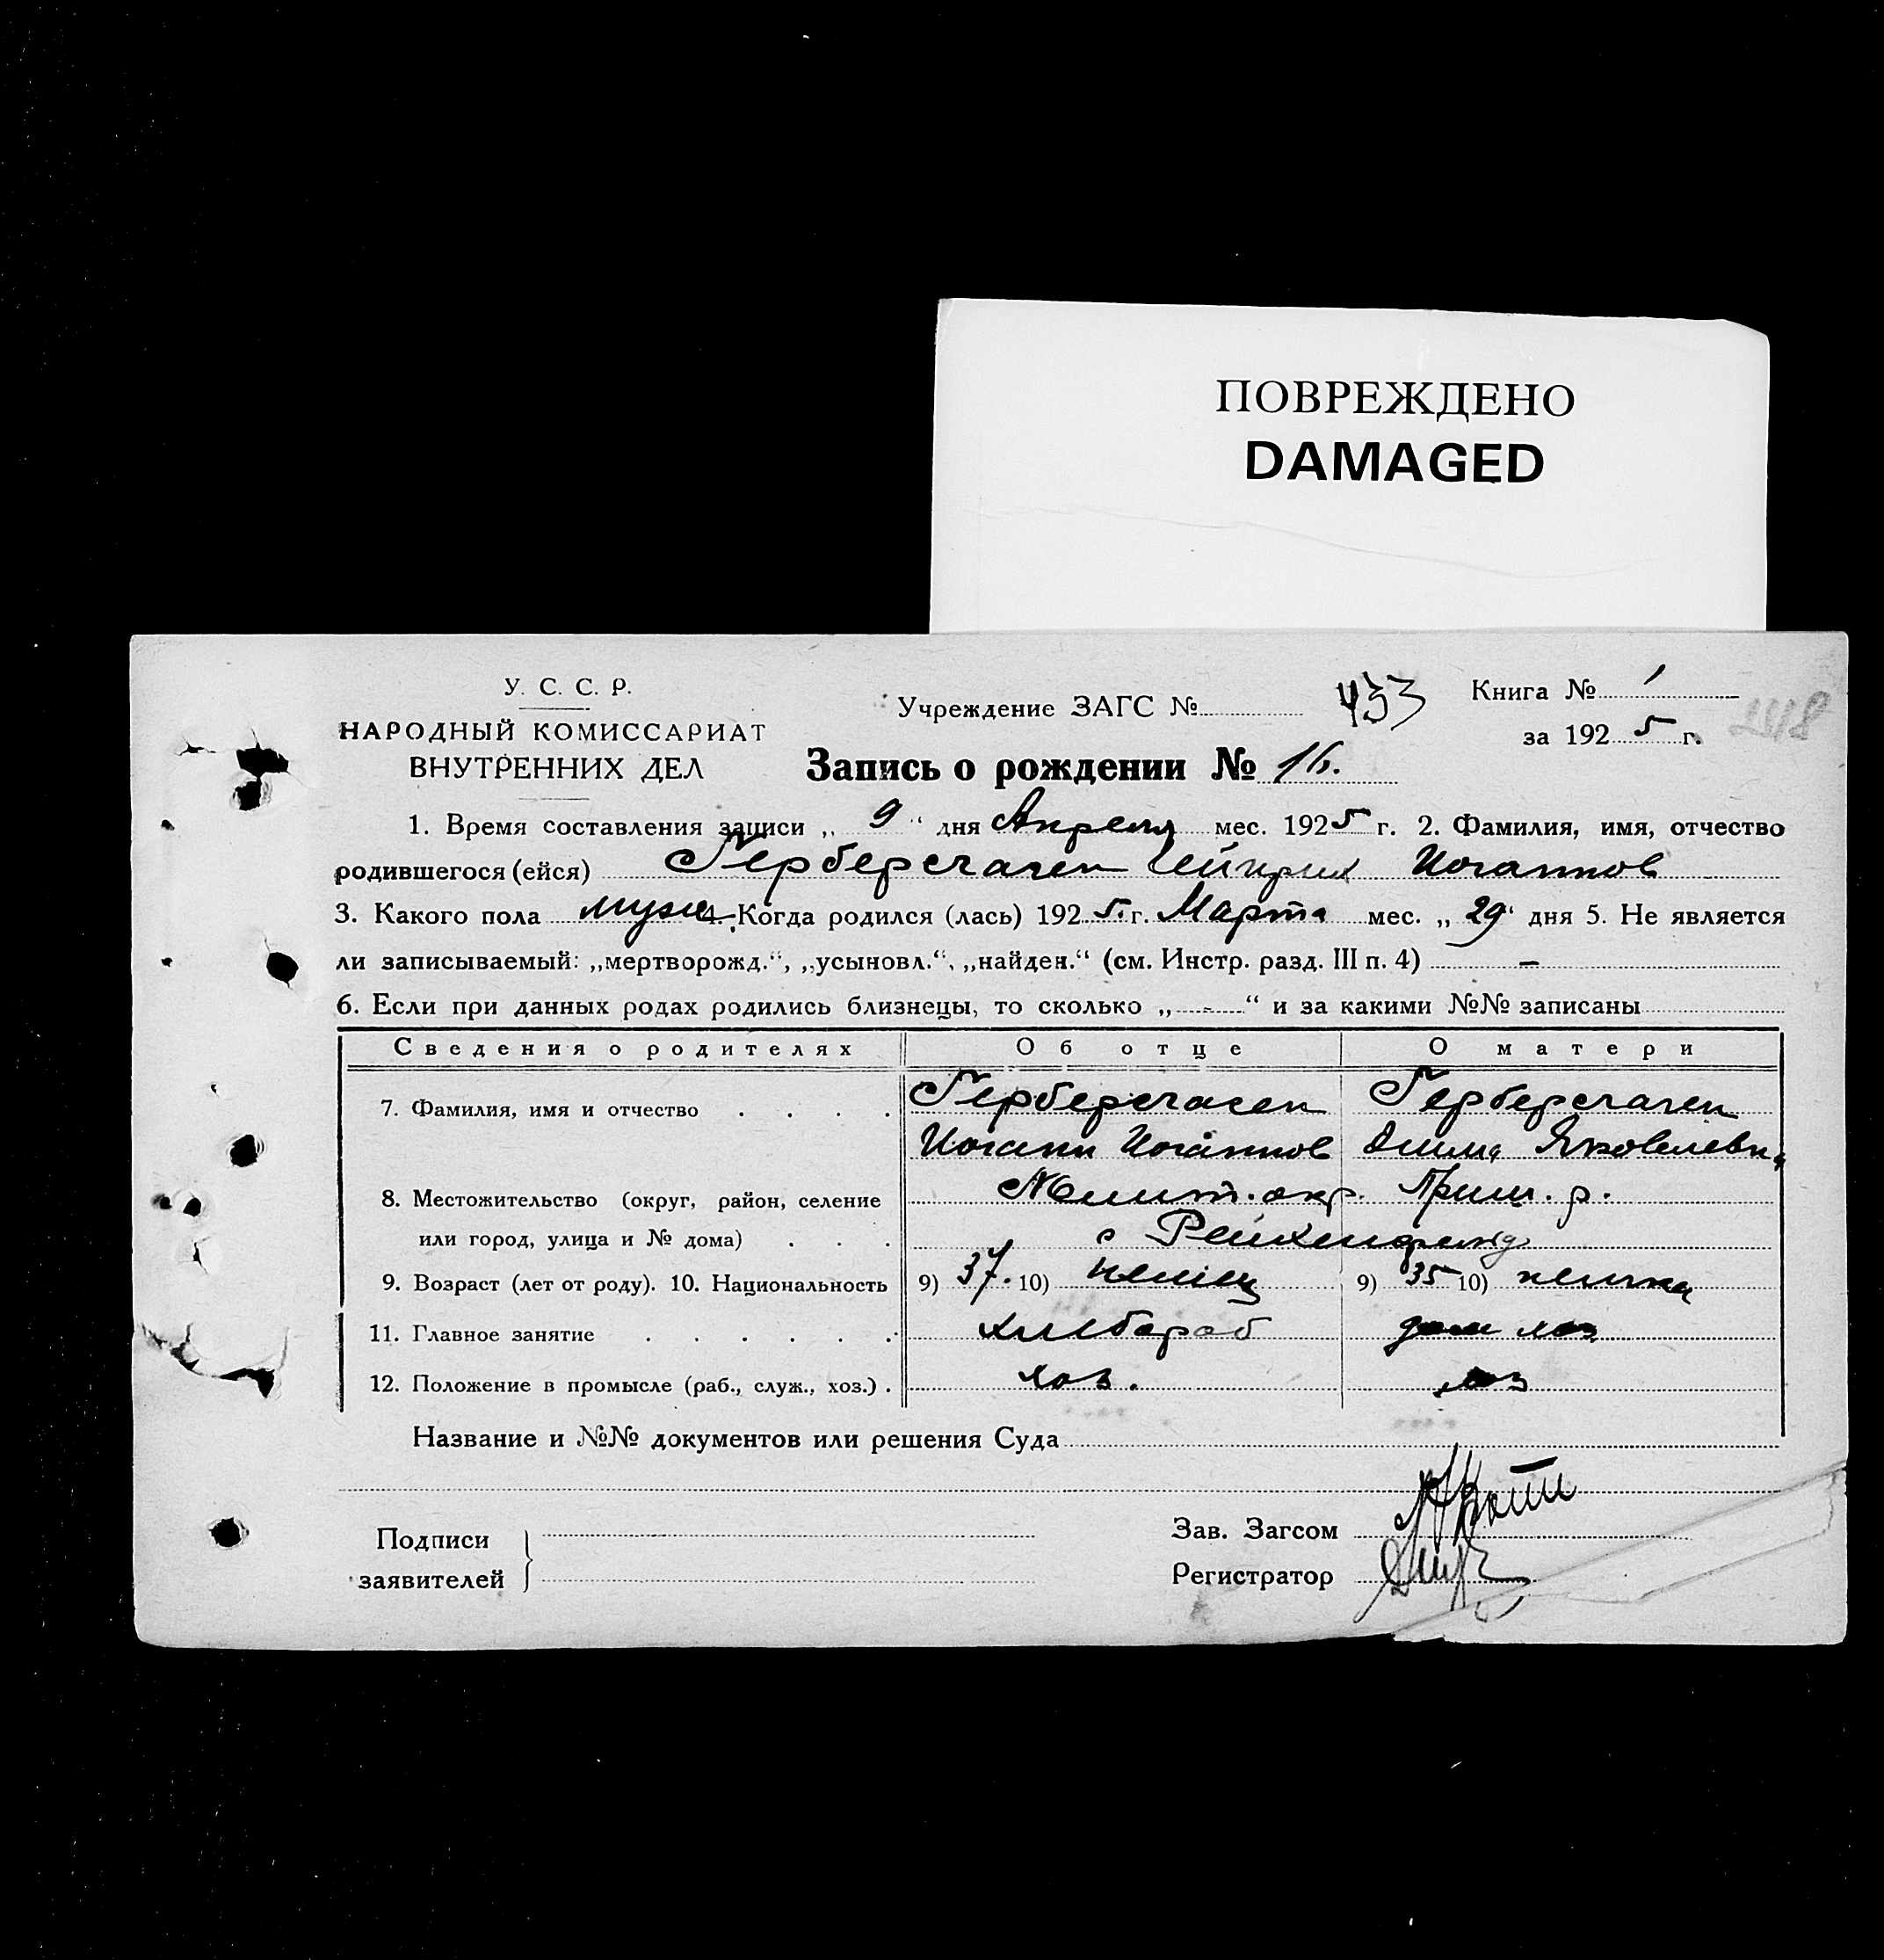 ПОВРЕЖДЕНО
DAMAGED
У. С. С. Р.
НАРОДНЫЙ КОМИССАРИАТ
ВНУТРЕННИХ ДЕЛ
Учреждение ЗАГС № 433
Книга № 1
за 1925 г.
248
Запись о рождении № 16.
1. Время составления записи „ 9 “ дня Апреля мес. 1925 г. 2. Фамилия, имя, отчество
родившегося (ейся) Герберсгаген Гейнрих Иоганнов
3. Какого пола мужс. 4. Когда родился (лась) 1925. г. Марта мес. „ 29 “ дня 5. Не является
ли записываемый: „мертворожд.“, „усыновл.“, „найден.“ (см. Инстр. разд. III п. 4) –
6. Если при данных родах родились близнецы, то сколько „ - “ и за какими №№ записаны
Сведения о родителях Об отце О матери
7. Фамилия, имя и отчество Герберсгаген Герберсгаген
Иоганн Иоганнов Яковлевн
8. Местожительство (округ, район, селение Мелит. окр. Приш. р.
или город, улица и № дома) с Рейхенфельд
9. Возраст (лет от роду). 10. Национальность 9) 37. 10) немец 9) 35 10) немка
11. Главное занятие хлебороб дом хоз
12. Положение в промысле (раб., служ., хоз.) . хоз. хоз
Название и №№ документов или решения Суда
Подписи
заявителей
Зав. Загсом
Регистратор